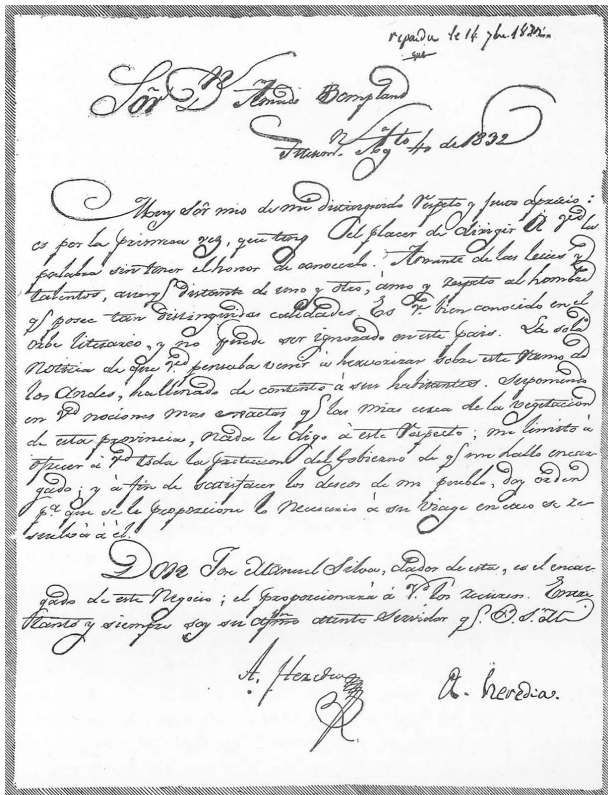 repondu le 14 7bre 1832.
Sõr Dn Amado Bompland
Tucumn. Agto 4 de 1832
Muy Sõr mio de mi distinguido respeto y justo aprecio:
es por la primera vez, que tengo el placer de dirigir á Vd la
palabra sin tener el honor de conocerlo. Amante de las luces y
talentos, aunq. distante de uno y otro, amo y respeto al hombre
q. posee tan distinguidas calidades. Es Vd bien conocido en el
orbe literario, y no puede ser ignorado en este pais. La sola
noticia de que Vd pensaba venir á hervorizar sobre este ramo de
los Andes, ha llenado de contento á sus habitantes. Suponiendo
en Vd nociones mas exactas q. las mias cerca de la vegetacion
de esta provincia, nada le digo á este respeto; me limito á
ofrecer á Vd toda la proteccion del Gobierno de q. me hallo encar
gado; y á fin de satisfacer los deseos de mi pueblo, doy orden
pa. que se le proporcione lo necesario á su viage en caso se re
suelva á él.
Don José Manuel Silva, dador de esta, es el encar
gado de este negocio; el proporcionará á Vd los recursos. Entre
tanto y siempre soy su atento servidor q. B. S. M.
A. Heredia
A. heredia.